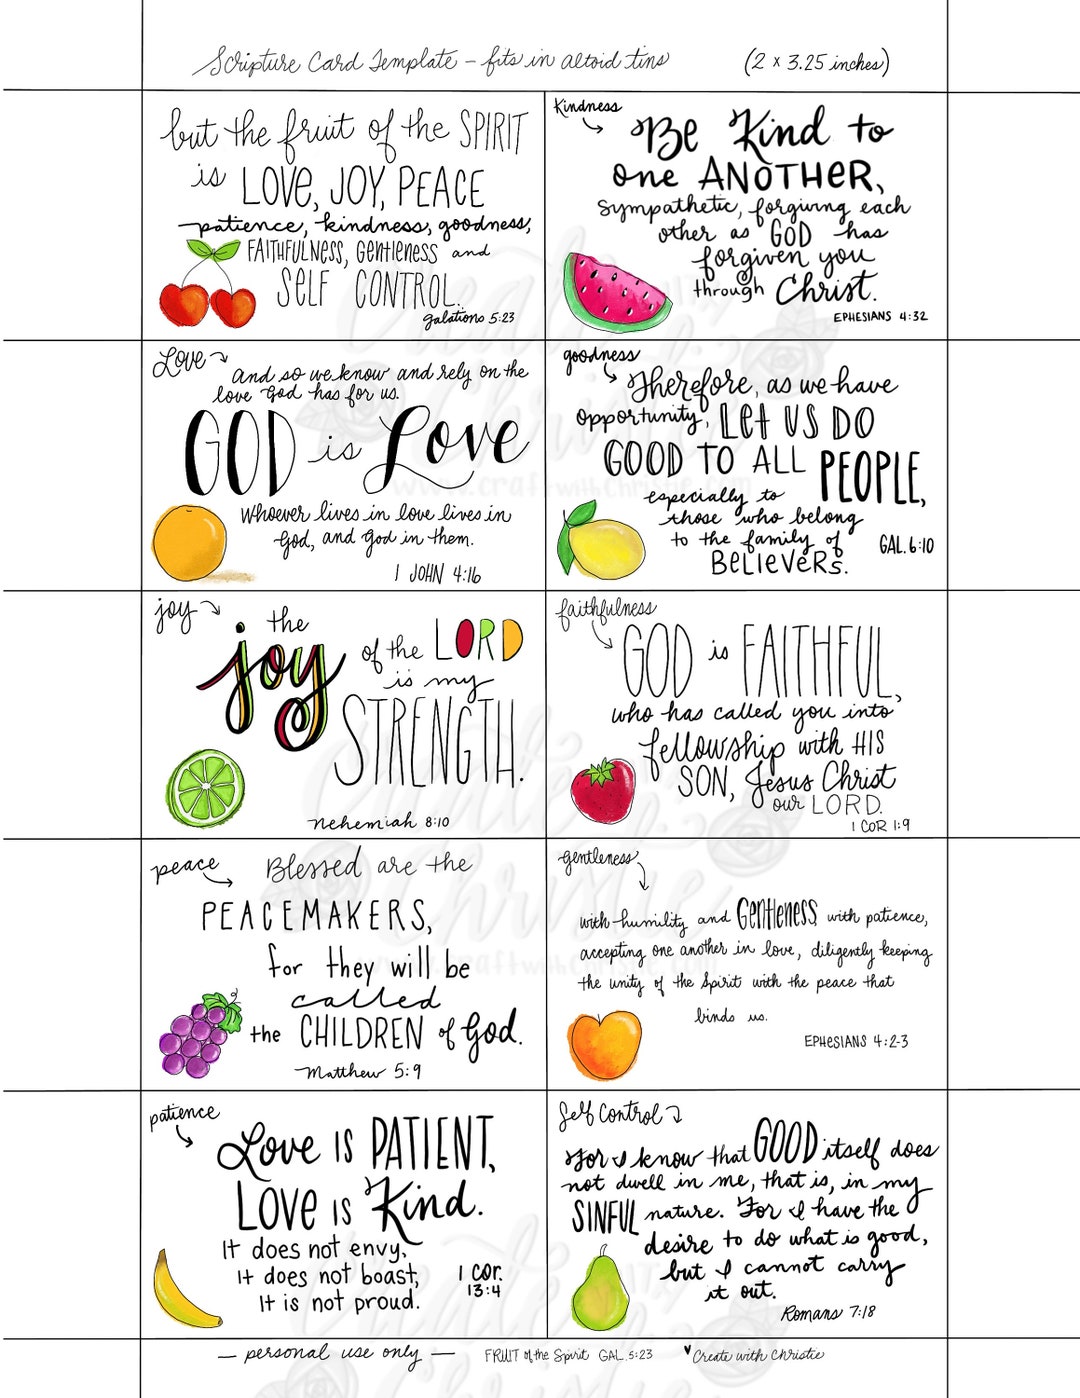 Scripture Card Template - fits in altoid tins (2 x 3.25 inches)
but the fruit of the SPIRIT
is LOVE, JOY, PEACE
patience, kindness, goodness,
FAITHFULNESS, Gentleness and
SELF CONTROL.
Galations 5:23
Kindness
Be Kind to
one ANOTHER,
sympathetic, forgiving each
other as GOD has
forgiven you
through Christ.
EPHESIANS 4:32
Love
And so we know and rely on the
love God has for us.
GOD is Love
Whoever lives in love lives in
God, and God in them.
1 JOHN 4:16
goodness
Therefore, as we have
opportunity, Let US DO
GOOD TO ALL PEOPLE,
especially to
those who belong
to the family of
BELIEVERS.
GAL. 6:10
joy
the
joy of the LORD
is my
STRENGTH.
Nehemiah 8:10
faithfulness
GOD is FAITHFUL,
who has called you into
fellowship with HIS
SON, Jesus Christ
our LORD.
1 COR 1:9
peace
Blessed are the
PEACEMAKERS,
for they will be
called
the CHILDREN of God.
Matthew 5:9
Gentleness
with humility and Gentleness, with patience,
accepting one another in love, diligently keeping
the unity of the Spirit with the peace that
binds us.
EPHESIANS 4:2-3
patience
Love IS PATIENT,
LOVE IS Kind.
It does not envy,
It does not boast,
It is not proud.
1 Cor.
13:4
Self Control
For I know that GOOD itself does
not dwell in me, that is, in my
SINFUL nature. For I have the
desire to do what is good,
but I cannot carry
it out.
Romans 7:18
- personal use only - FRUIT of the Spirit GAL. 5:23 ♥Create with Christie
Create with
Christie
www.craftwithchristie.com
Create with
Christie
www.craftwithchristie.com